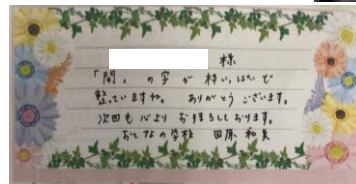 様
「間」の字が枠いっぱいで
整っていますね。ありがとうございます。
次回も心よりお待ちしております。
おとなの学校 田原 和美